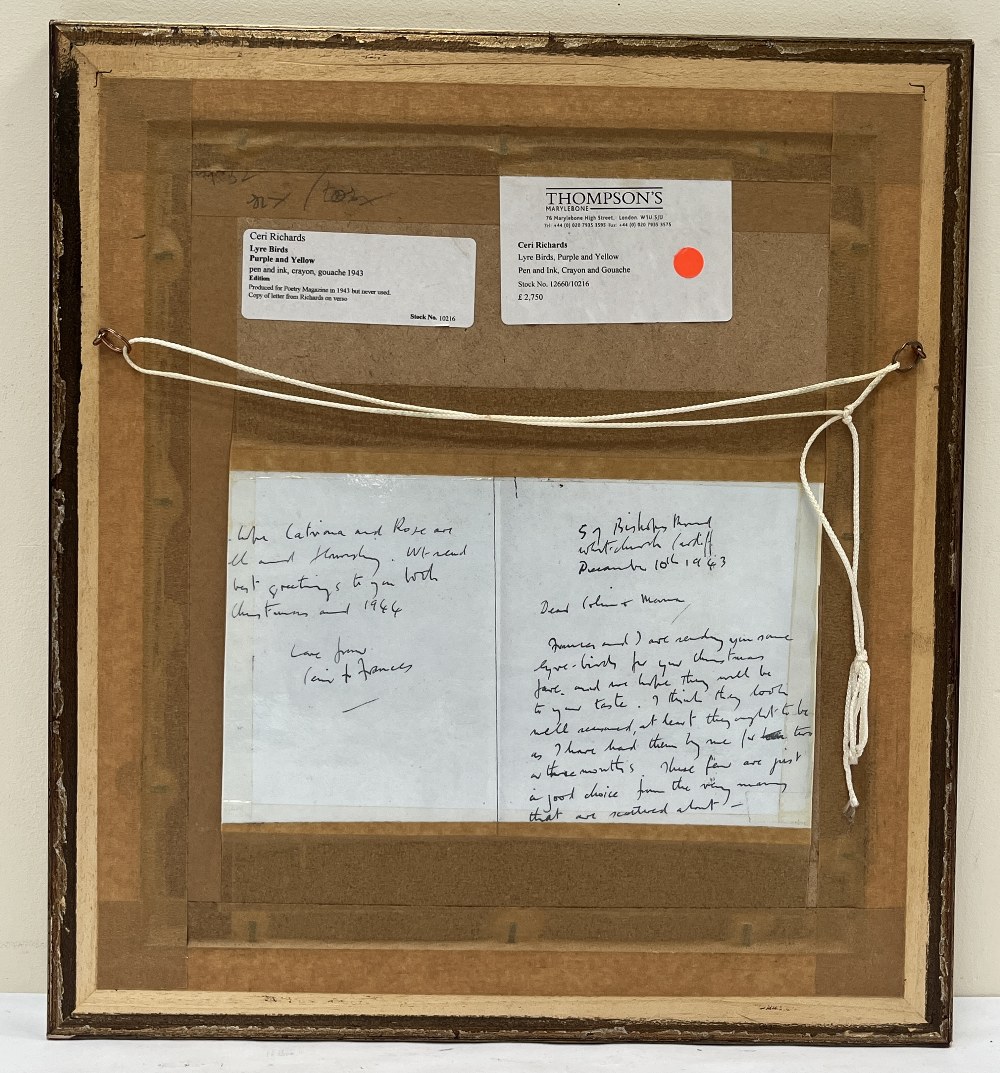 Ceri Richards
Lyre Birds
Purple and Yellow
pen and ink, crayon, gouache 1943
Edition
Produced for Poetry Magazine in 1943 but never used.
Copy of letter from Richards on verso
Stock No. 10216
THOMPSON'S
MARYLEBONE
76 Marylebone High Street, London W1U 5JU
Tel: +44 (0) 020 7935 3595 Fax: +44 (0) 020 7935 3575
Ceri Richards
Lyre Birds, Purple and Yellow
Pen and Ink, Crayon and Gouache
Stock No. 12660/10216
£ 2,750
hope Catriona and Rose are
and flourishing. We send
best greetings to you both
Christmas and 1944
Love from
Ceri & Frances
Bishops
Whitchurch Cardiff
December 10th 1943
Dear Colin &
Frances and I are sending you some
lyre-birds for your Christmas
fare - and we hope they will be
to your taste. I think they look
well seasoned, at least they ought to be
as I have had them by me for two
or three months. These few are just
a good choice from the very many
that are scattered about -